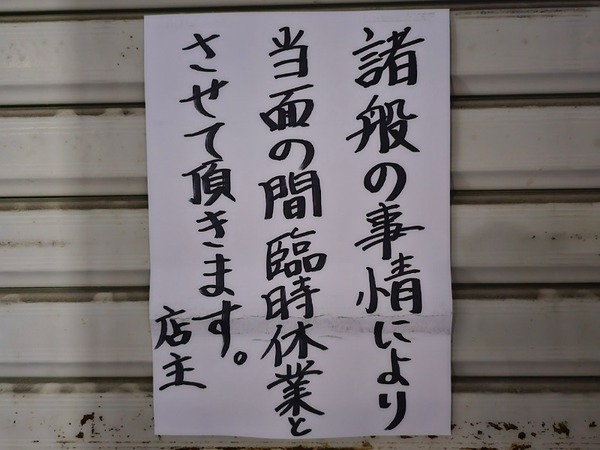 諸般の事情により
当面の間臨時休業と
させて頂きます。
店主